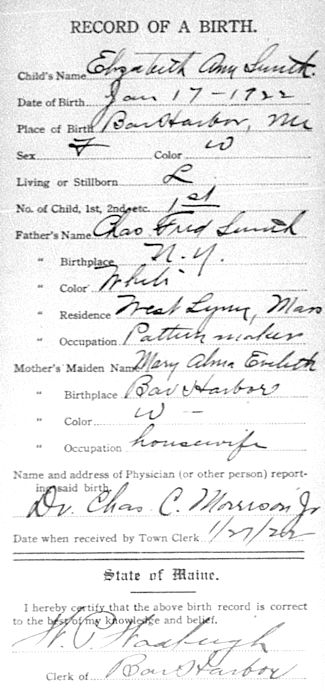 RECORD OF A BIRTH.
Child's Name Elizabeth Ann Smith.
Date of Birth Jan 17-1922
Place of Birth Bar Harbor, Me
Sex F Color W
Living or Stillborn L
No. of Child, 1st, 2nd, etc. 1st
Father's Name Chas Fred Smith
" Birthplace N.Y.
" Color White
" Residence West Lynn, Mass
" Occupation Pattern maker
Mother's Maiden Name Mary Alma Eveleth
" Birthplace Bar Harbor
" Color W -
" Occupation housewife
Name and address of Physician (or other person) report-
ing said birth
Dr. Chas C. Morrison Jr
Date when received by Town Clerk 1/27/22
State of Maine.
I hereby certify that the above birth record is correct
to the best of my knowledge and belief.
W. P.
Clerk of Bar Harbor